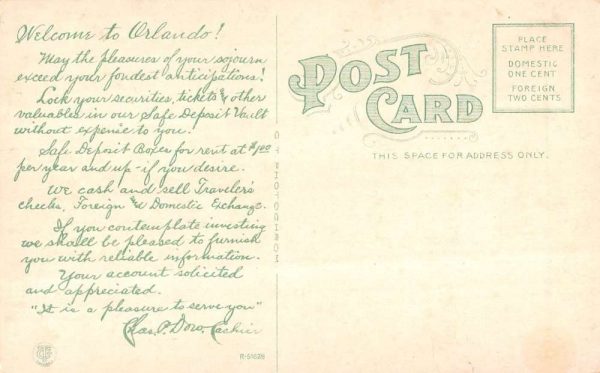 Welcome to Orlando!
May the pleasures of your sojourn
exceed your fondest anticipations!
Lock your securities, tickets & other
valuables in our Safe Deposit Vault
without expense to you!
Safe Deposit Boxes for rent at $1.00
per year and up - if you desire.
We cash and sell Traveler's
checks, Foreign and Domestic Exchange.
If you contemplate investing
we shall be pleased to furnish
you with reliable information.
Your account solicited
and appreciated.
"It is a pleasure to serve you"
Chas. P. Dow, Cashier
R-51628
POST
CARD
THIS SPACE FOR ADDRESS ONLY.
PLACE
STAMP HERE
DOMESTIC
ONE CENT
FOREIGN
TWO CENTS